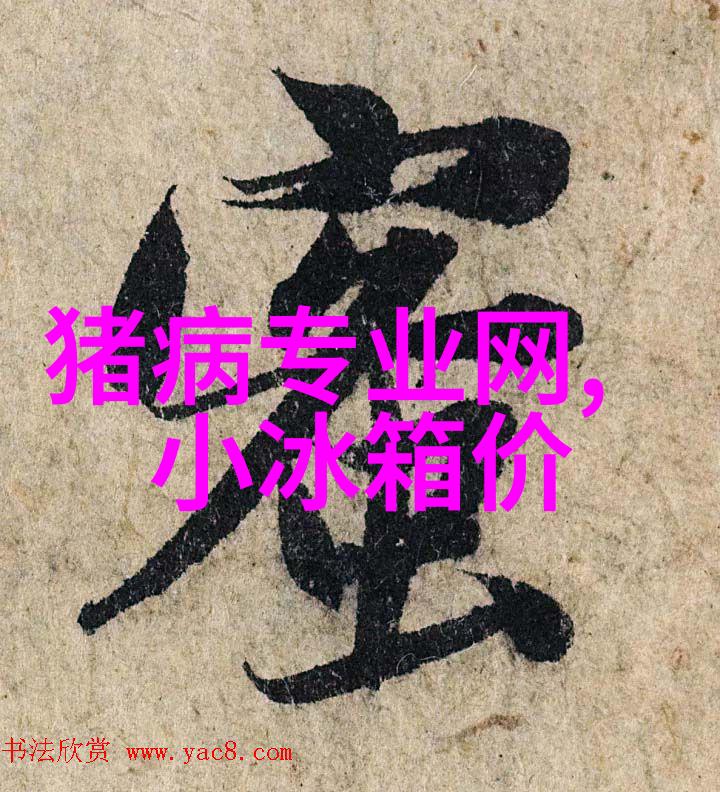 猪病专业网,
小冰箱价
书法欣赏 www.yac8.com